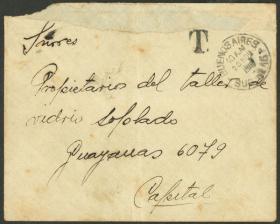 Señores
T.
BUENOS AIRES
Propietarios del taller de
vidrio soplado
Guayanas 6079
Capital